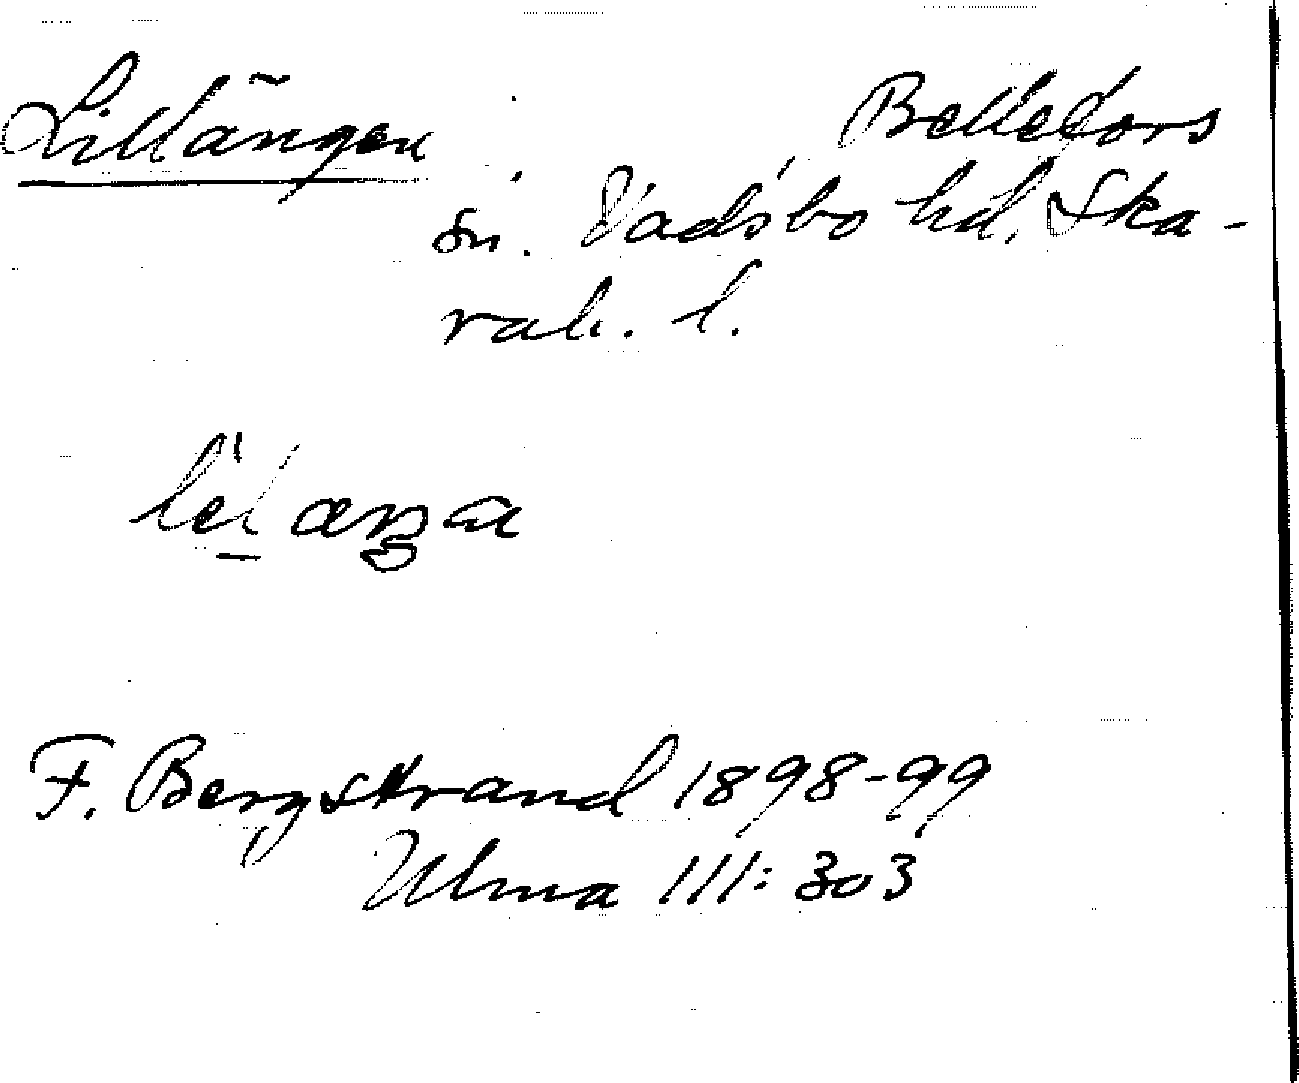 Lillängen Bellefors
sn. Vadsbo hd. Ska-
rab. l.
F. Bergstrand 1898-99
Ulma 111:303